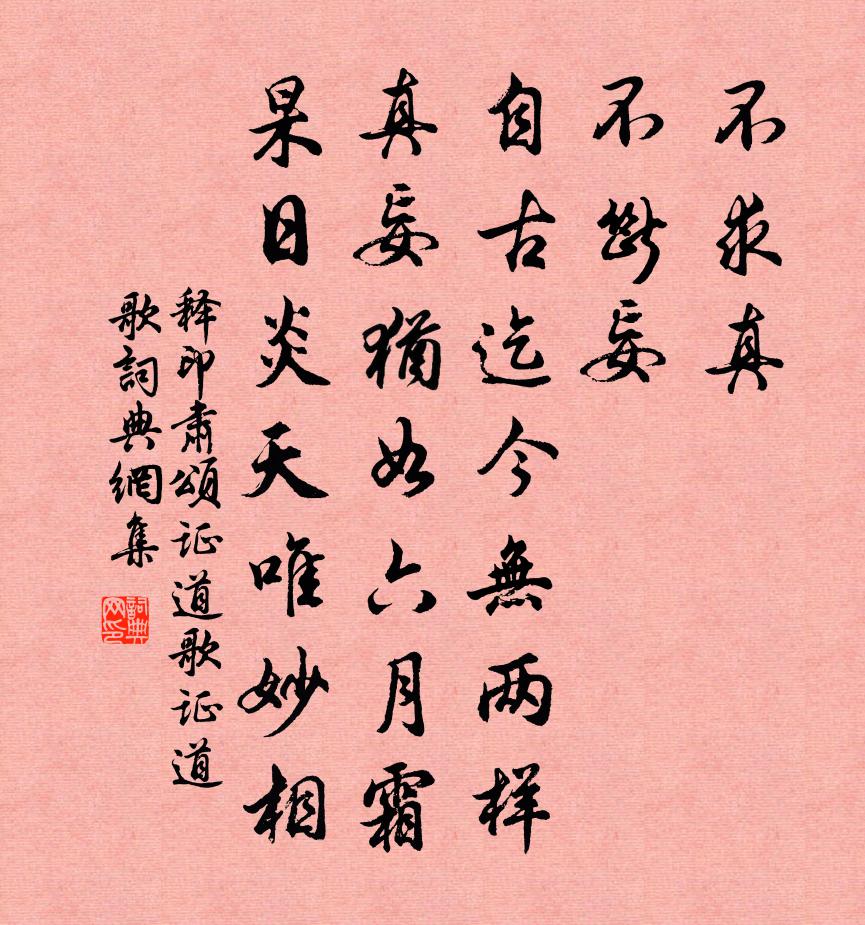 不求真
不斷妄
自古迄今無两样
真妄猶如六月霜
杲日炎天唯妙相
释印肃頌证道歌证道
歌詞典網集
詞典网印